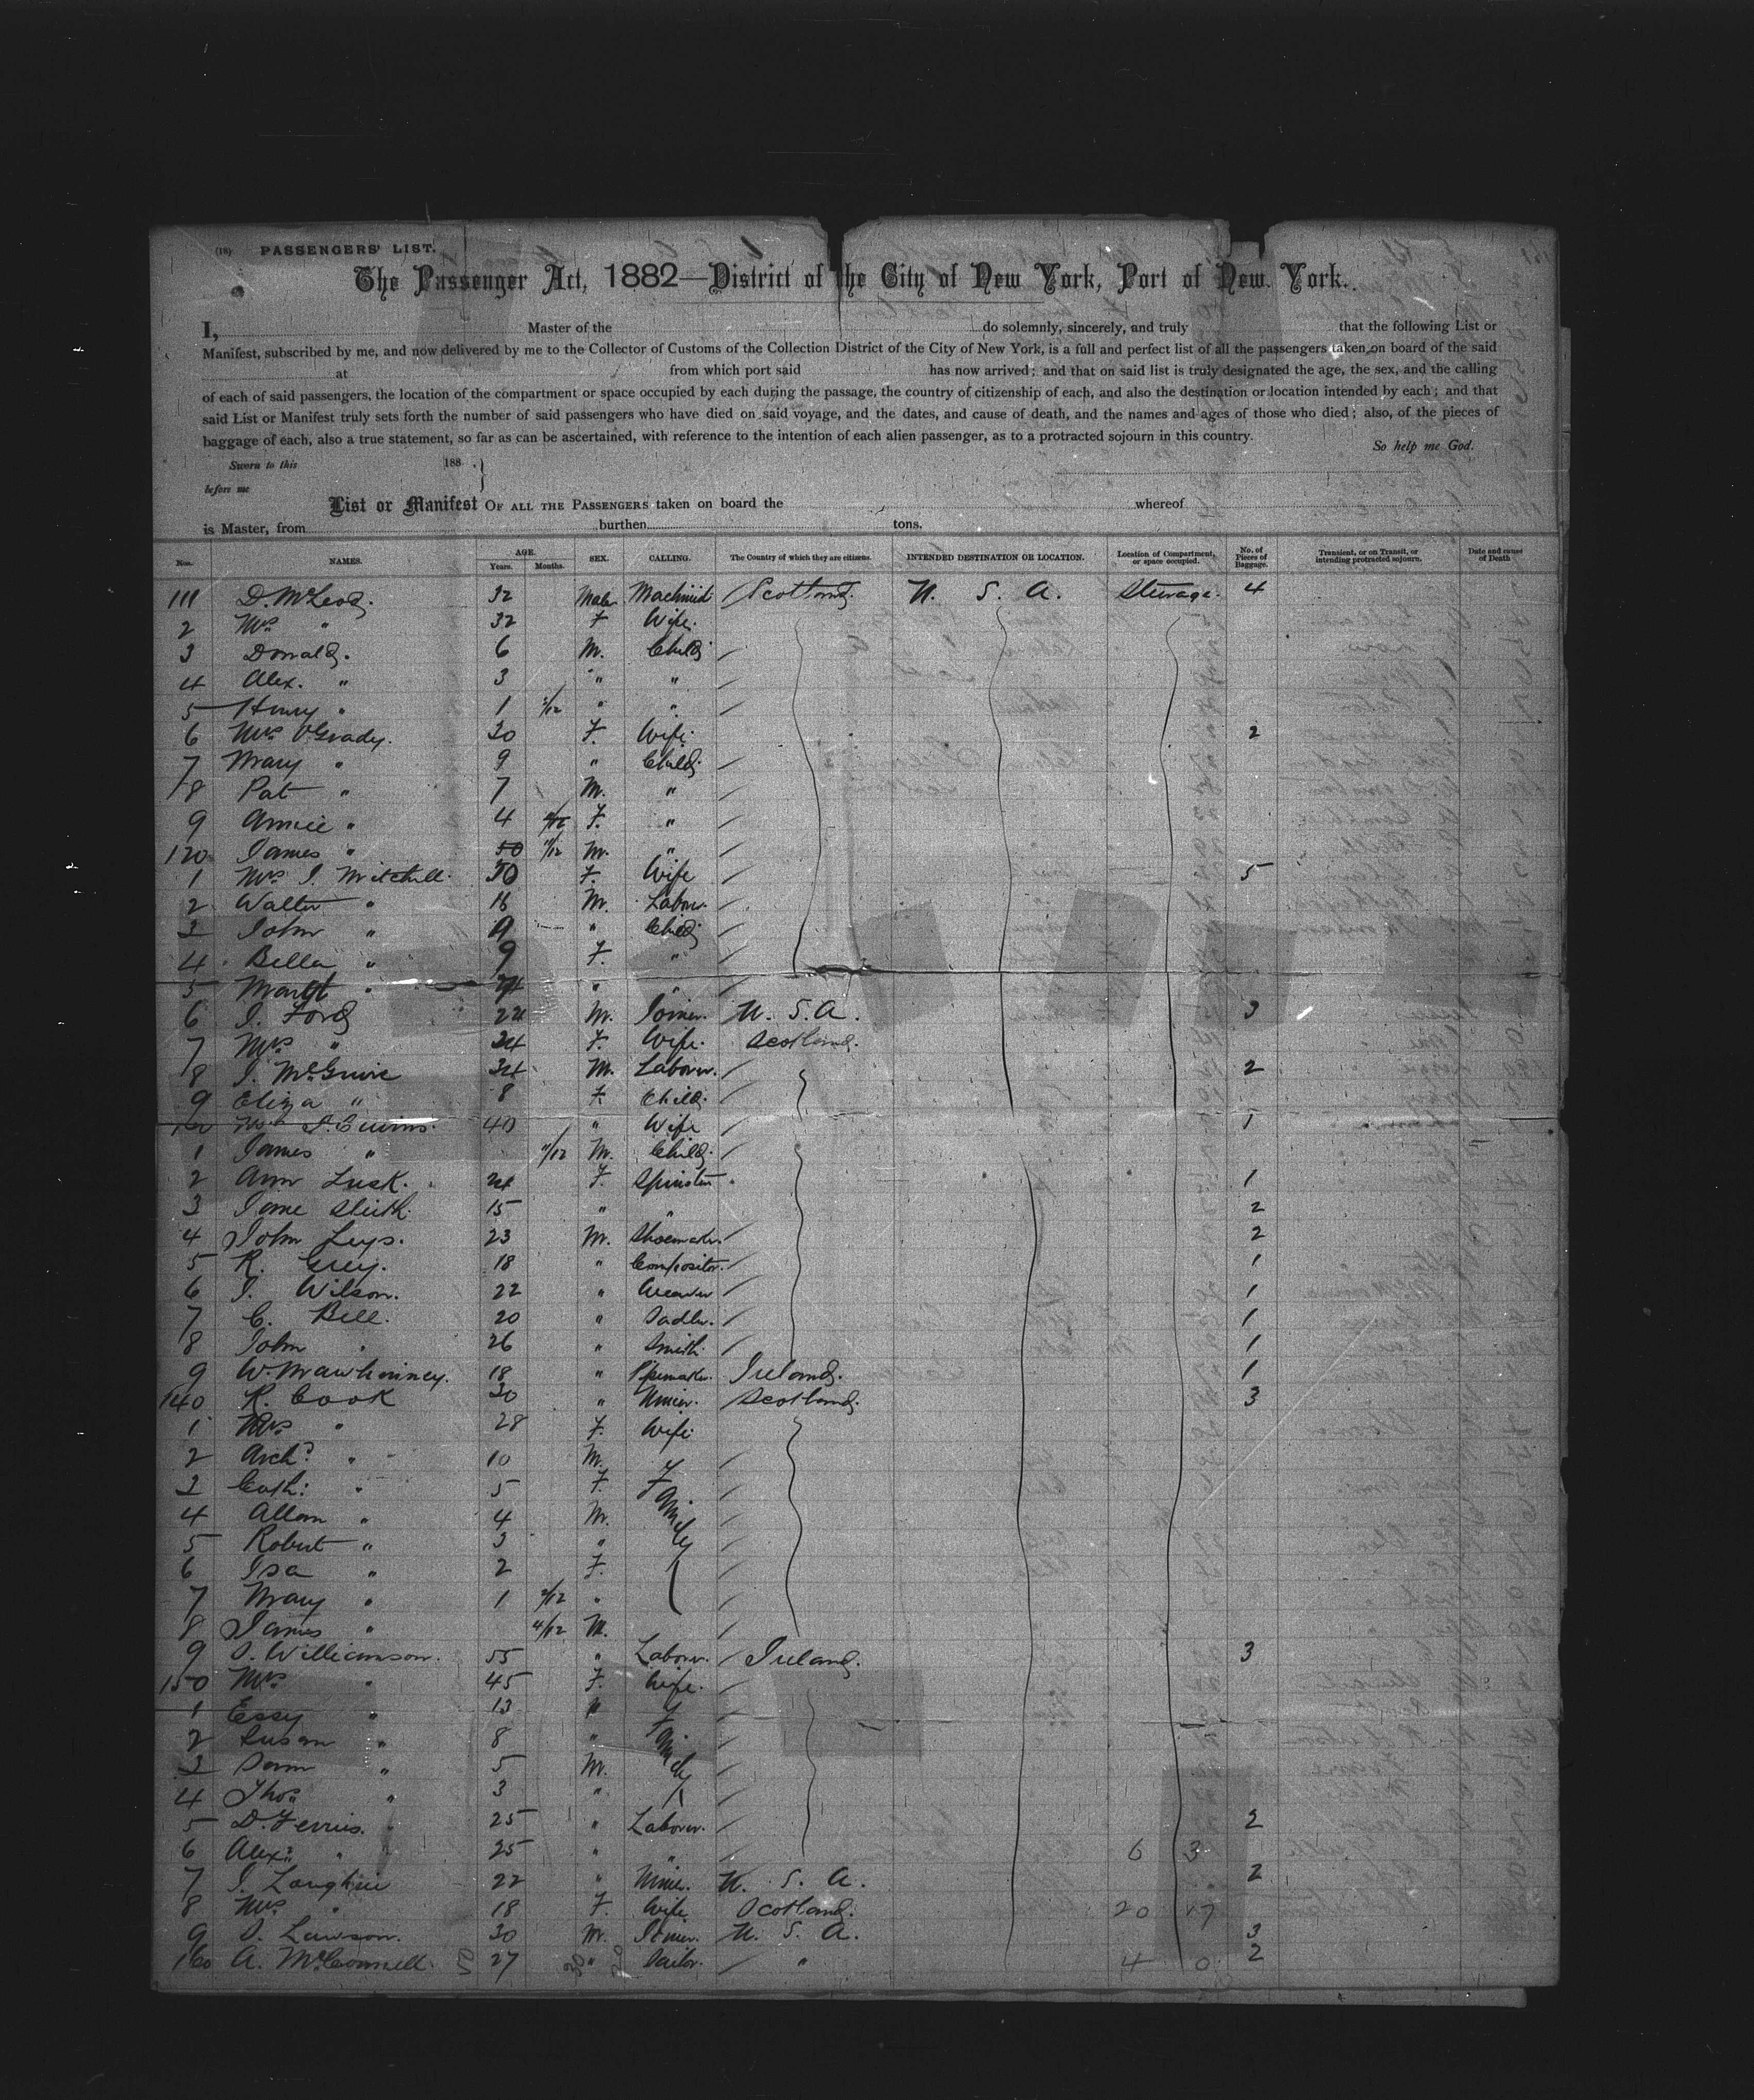 (18) PASSENGERS' LIST.
The Passenger Act, 1882—District of the City of New York, Port of New York.
I, Master of the do solemnly, sincerely, and truly that the following List or
Manifest, subscribed by me, and now delivered by me to the Collector of Customs of the Collection District of the City of New York, is a full and perfect list of all the passengers taken on board of the said
at from which port said has now arrived; and that on said list is truly designated the age, the sex, and the calling
of each of said passengers, the location of the compartment or space occupied by each during the passage, the country of citizenship of each, and also the destination or location intended by each; and that
said List or Manifest truly sets forth the number of said passengers who have died on said voyage, and the dates, and cause of death, and the names and ages of those who died; also, of the pieces of
baggage of each, also a true statement, so far as can be ascertained, with reference to the intention of each alien passenger, as to a protracted sojourn in this country.
So help me God.
Sworn to this 188 .
before me
List or Manifest OF ALL THE PASSENGERS taken on board the whereof
is Master, from burthen tons.
Nos. NAMES. AGE. Years. Months. SEX. CALLING. The Country of which they are citizens. INTENDED DESTINATION OR LOCATION. Location of Compartment, or space occupied. No. of Pieces of Baggage. Transient, or on Transit, or intending protracted sojourn. Date and cause of Death
111 D. McLeod. 32 Male Machinist Scotland U. S. A. Steerage. 4
2 Mrs " 32 F Wife.
3 Donald. 6 M. Child
4 Alex. " 3 " "
5 Henry " 1 " "
6 Mrs O'Grady. 30 F. Wife. 2
7 Mary " 9 " Child
8 Pat " 7 M. "
9 Annie " 4 F. "
120 James " 11/12 M. "
1 Mrs J. Mitchell. 50 F. Wife 5
2 Walter " 16 M. Labour.
3 John " " Child
4 Bella " 9 F. "
5 Margt " " "
6 J. Ford 24 M. Joiner. U. S. A. 3
7 Mrs " 24 F. Wife. Scotland.
8 J. McGuire 34 M. Laborer. 2
9 Eliza " 8 F. Child.
Mrs 40 " Wife 1
1 James " 11/12 M. Child.
2 Ann Lusk. 24 F. Spinster. 1
3 Jane 15 " " 2
4 John Leys. 23 M. Shoemaker. 2
5 R. Grey. 18 " Compositor. 1
6 J. Wilson. 22 " Weaver 1
7 C. Bell. 20 " Sadler. 1
8 John " 26 " Smith. 1
9 W. Mawhinney. 18 " Ireland. 1
140 R. Cook 30 " Miner. Scotland. 3
1 Mrs " 28 F. Wife
2 Archd " 10 M. Family
3 Cath: " 5 F.
4 Allan " 4 M.
5 Robert " 3 "
6 Isa " 2 F.
7 Mary " 1 "
8 James " 4/12 M.
9 Williamson. 55 " Laborer. Ireland. 3
150 Mrs " 45 F. Wife.
1 Essy " 13 " Family
2 Susan " 8 "
3 Sam " 5 M.
4 Thos " 3 "
5 D. Ferris. 25 " Laborer. 2
6 Alexr " 25 " " 6 3
7 J. Laughlin 22 " Miner. U. S. A. 2
8 Mrs " 18 F. Wife Scotland. 20 17
9 Lawson. 30 M. Joiner. U. S. A. 3
160 A. McConnell. 27 " " 4 0 2